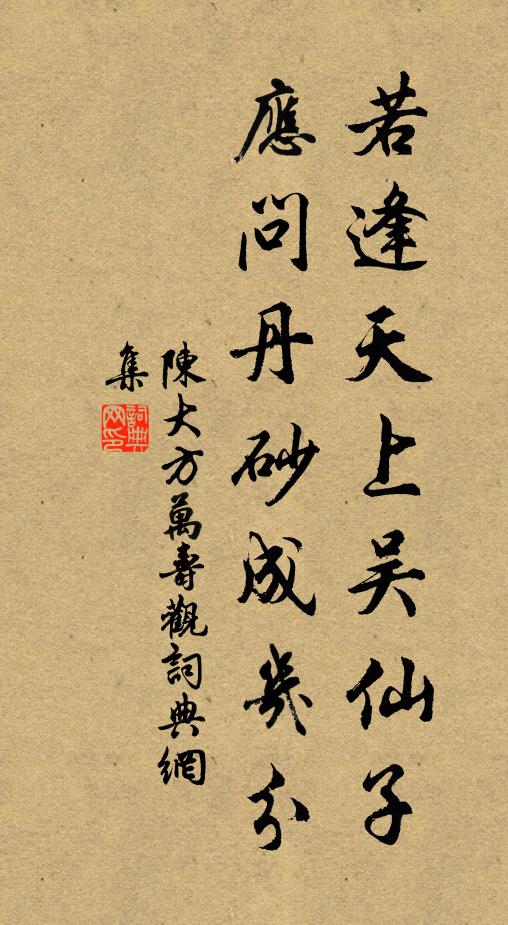 若逢天上吴仙子
應問丹砂成幾分
陳大方萬壽觀詞典網
集
詞典
网印